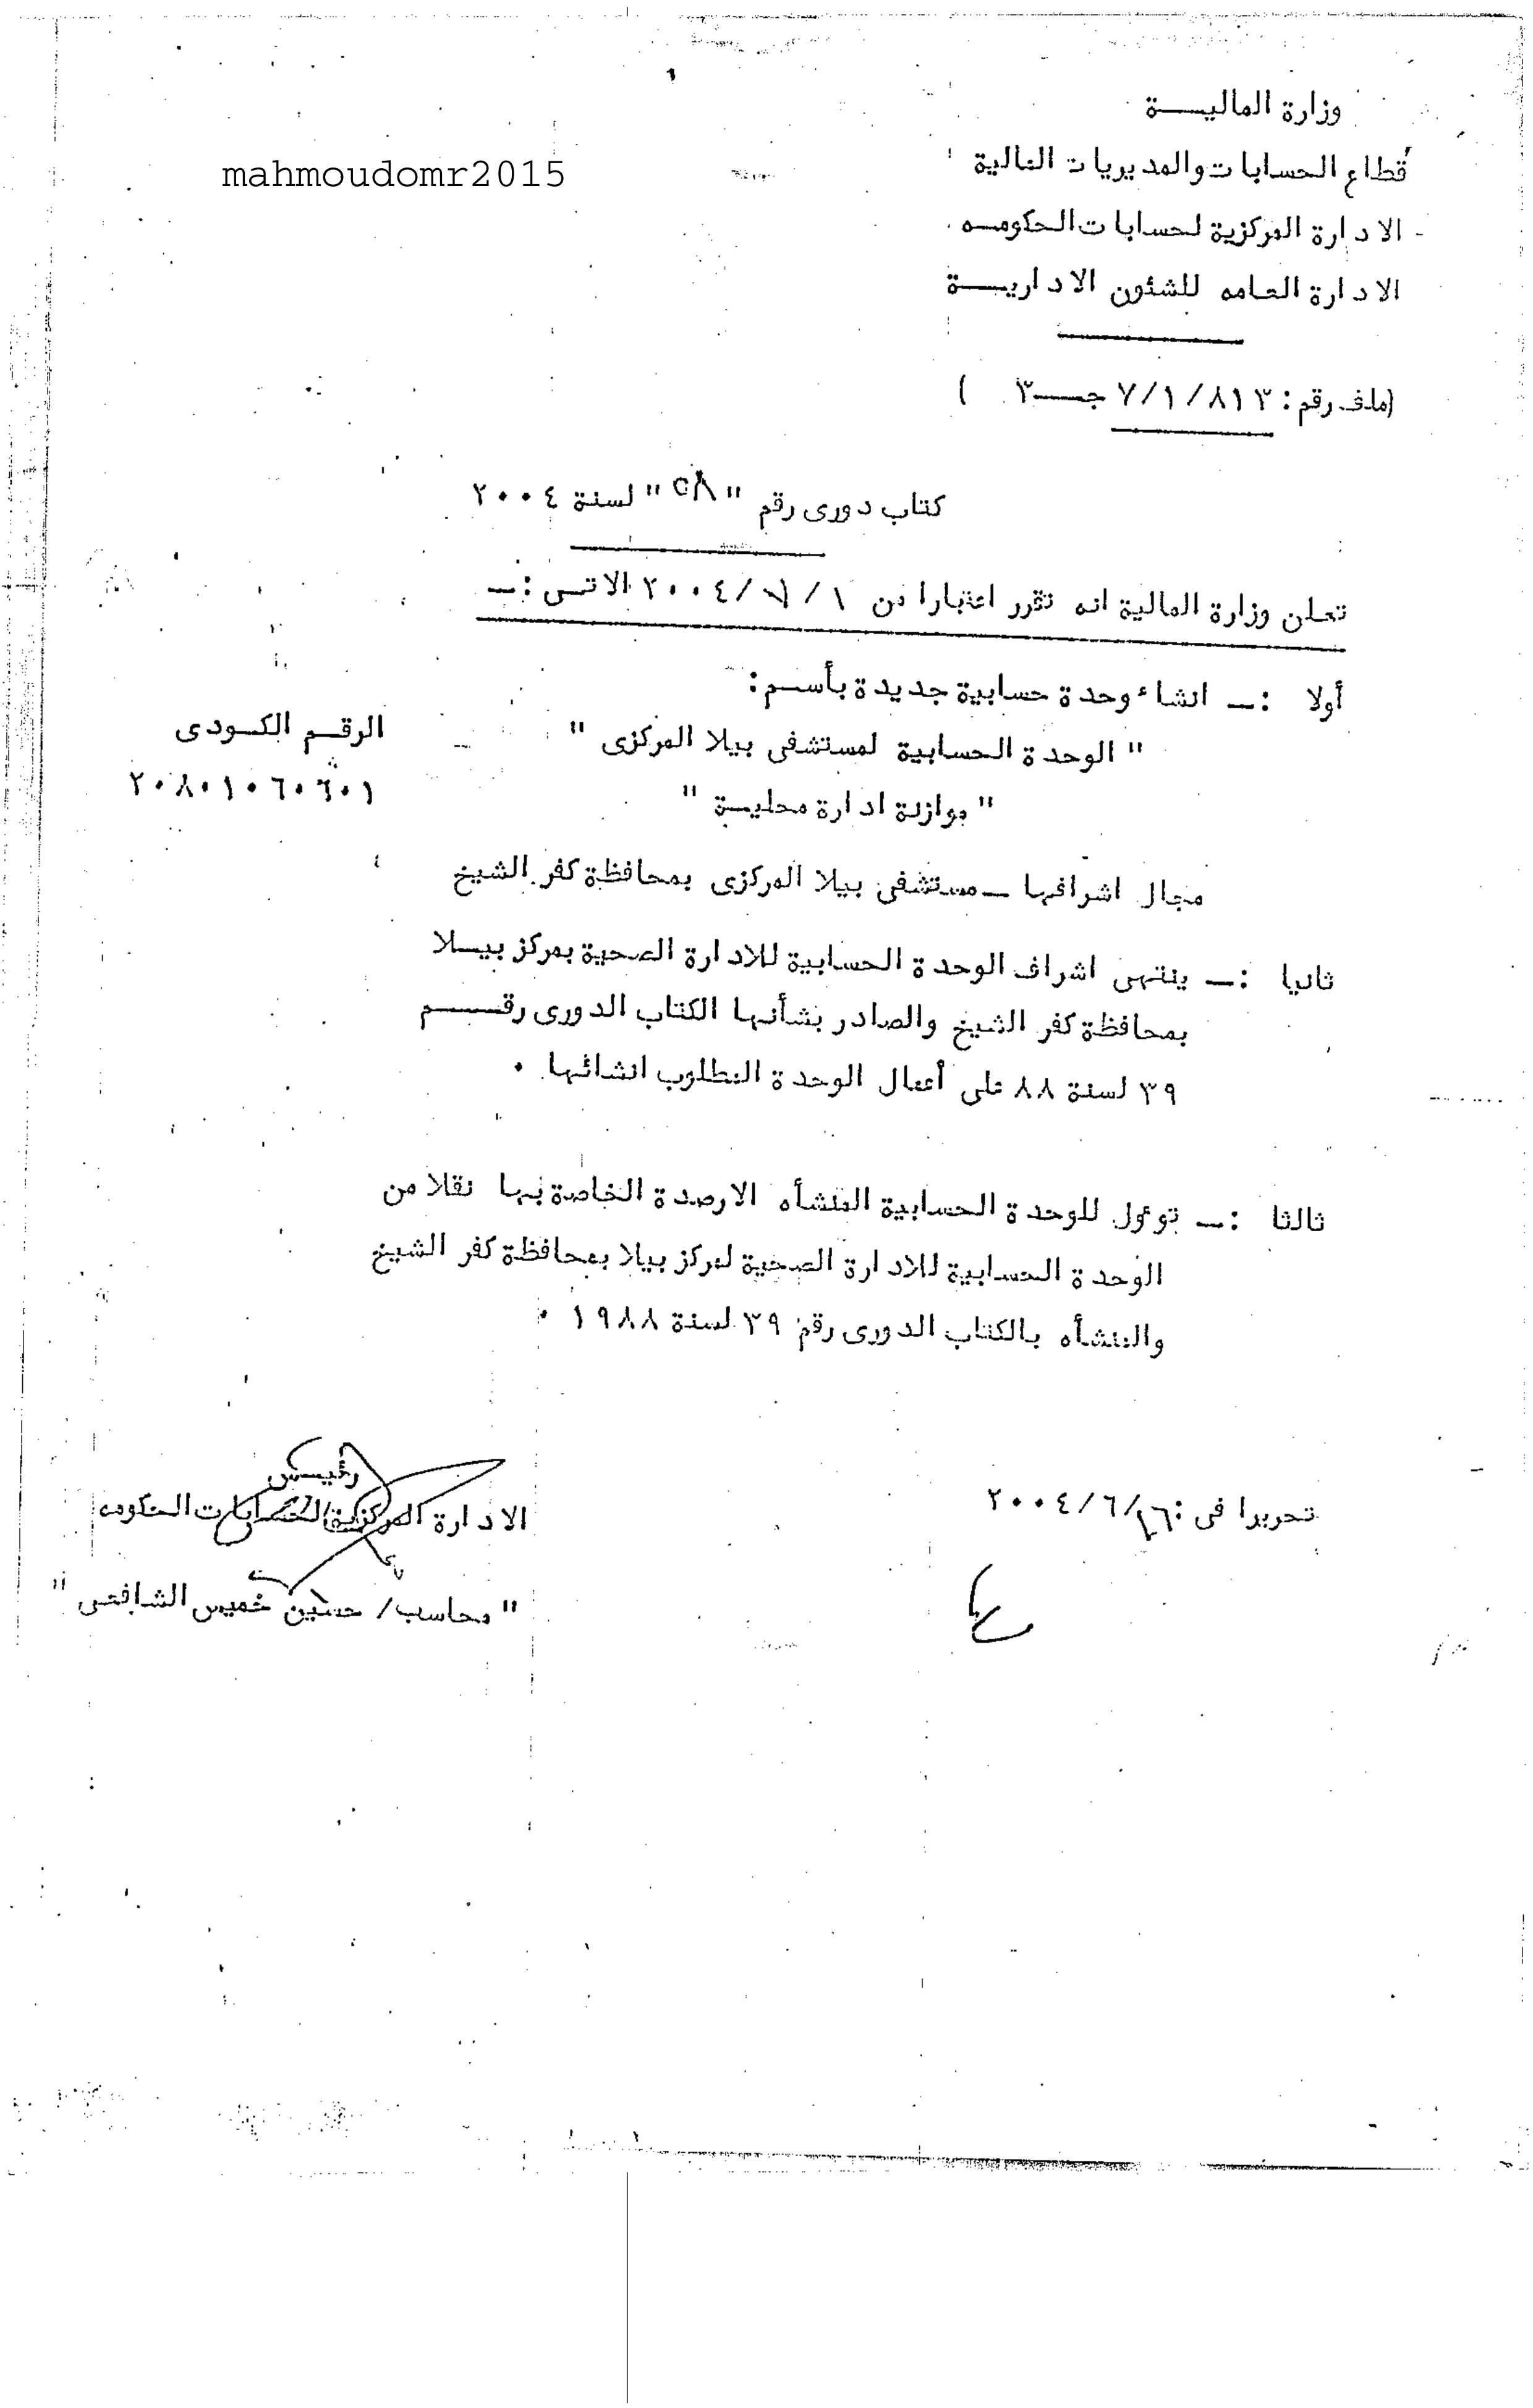 وزارة الماليـــــة
mahmoudomr2015
قطاع الحسابات والمديريات المالية
الادارة المركزية لحسابات الحكومـه
الادارة العامه للشئون الاداريــــة
(ملف رقم : ٧/١/٨١٣ جـــ٣ )
كتاب دورى رقم " ٥٨ " لسنة ٢٠٠٤
تعلن وزارة المالية انه تقرر اعتبارا من ١/ /٢٠٠٤ الاتــى :ــ
أولا :ــ انشاء وحدة حسابية جديدة بأســم :
" الوحدة الحسابية لمستشفى بيلا المركزى " الرقــم الكــودى
" موازنة ادارة محليــة " ٢٠٨٠١٠٦٠٦٠١
مجال اشرافها ــ مستشفى بيلا المركزى بمحافظة كفر الشيخ
ثانيا :ــ ينتهى اشراف الوحدة الحسابية للادارة الصحية بمركز بيــلا
بمحافظة كفر الشيخ والصادر بشأنها الكتاب الدورى رقــــــم
٣٩ لسنة ٨٨ على أعمال الوحدة المطلوب انشائها ٠
ثالثا :ــ توءول للوحدة الحسابية المنشأه الارصدة الخاصة بها نقلا من
الوحدة الحسابية للادارة الصحية لمركز بيلا بمحافظة كفر الشيخ
والمنشأه بالكتاب الدورى رقم ٣٩ لسنة ١٩٨٨ ٠
رئيــس
تحريرا فى : ٢٦/٦/٢٠٠٤ الادارة المركزية لحسابات الحكومه
" محاسب/ حسين خميس الشافعى "